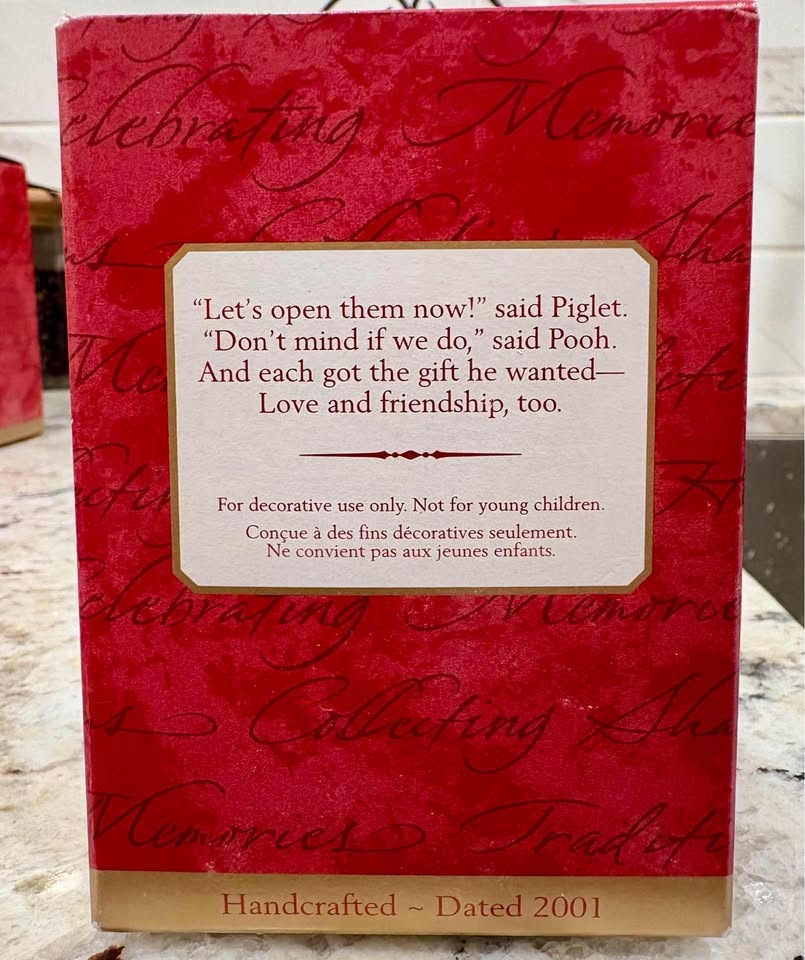 elebrating Memorie
as Collecting Sha
“Let’s open them now!” said Piglet.
“Don’t mind if we do,” said Pooh.
And each got the gift he wanted—
Love and friendship, too.
For decorative use only. Not for young children.
Conçue à des fins décoratives seulement.
Ne convient pas aux jeunes enfants.
elebrating Memorie
as Collecting Sha
Memories Traditi
Handcrafted ~ Dated 2001